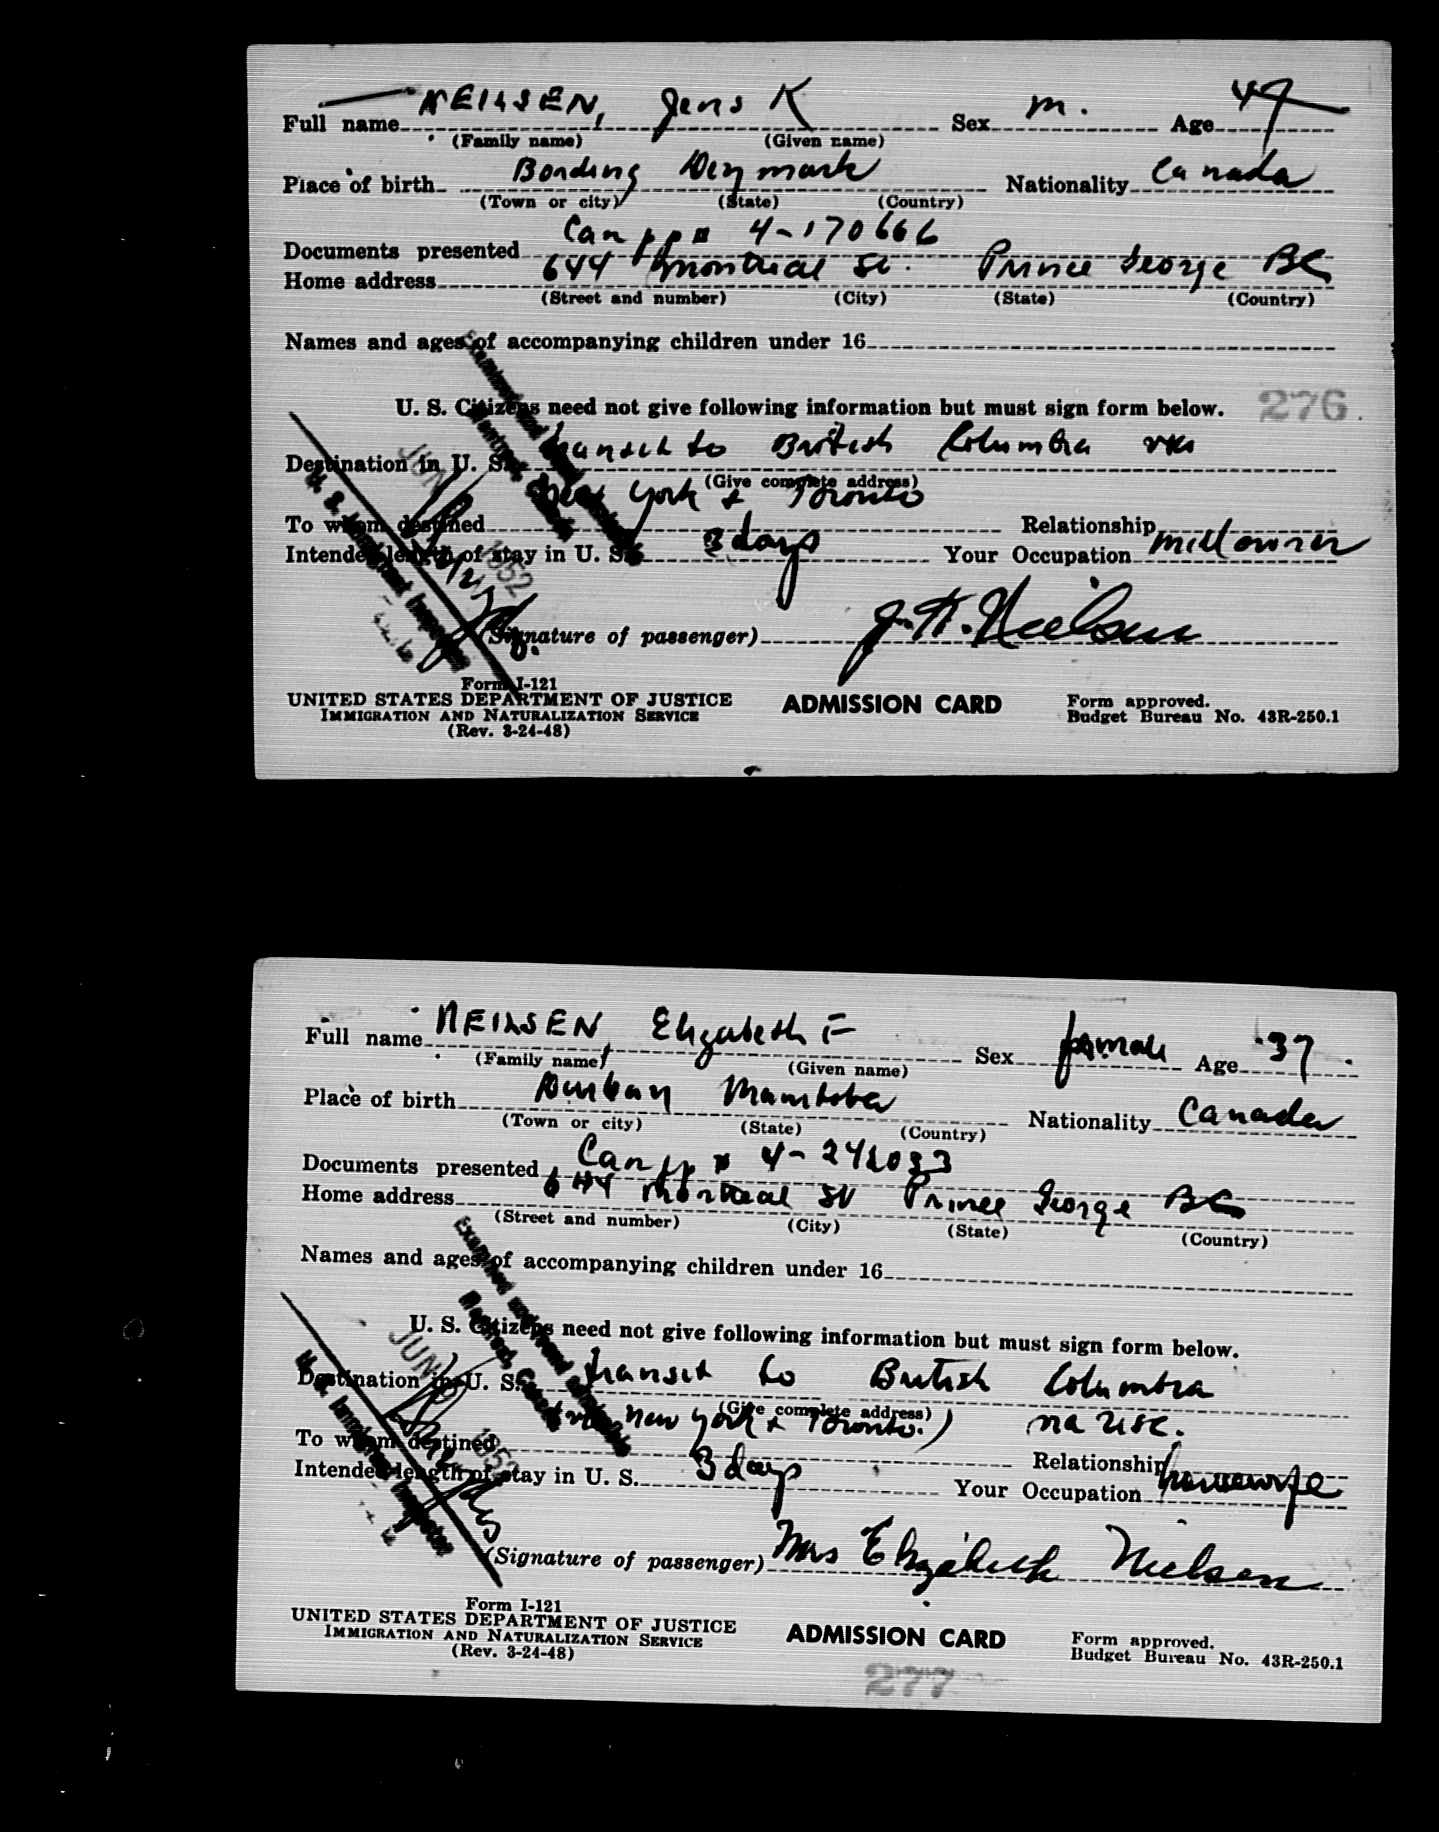 Full name NEILSEN, Jens K Sex m. Age 49
(Family name) (Given name)
Place of birth Bording Denmark Nationality Canada
(Town or city) (State) (Country)
Documents presented Can pp # 4-170666
Home address 644 Montreal St. Prince George BC
(Street and number) (City) (State) (Country)
Names and ages of accompanying children under 16
U. S. Citizens need not give following information but must sign form below. 276
Destination in U. S. transit to British Columbia via
(Give complete address)
New York & Toronto
To whom destined Relationship
Intended length of stay in U. S. 3 days Your Occupation mill owner
(Signature of passenger) J. K. Nielsen
Examined and
Montreal, Canada
JUN 1952
U. S. Immigrant Inspector
Form I-121
UNITED STATES DEPARTMENT OF JUSTICE ADMISSION CARD Form approved.
IMMIGRATION AND NATURALIZATION SERVICE Budget Bureau No. 43R-250.1
(Rev. 3-24-48)
Full name NEILSEN, Elizabeth F Sex female Age 37
(Family name) (Given name)
Place of birth Durban Manitoba Nationality Canada
(Town or city) (State) (Country)
Documents presented Can pp # 4-242033
Home address 644 Montreal St Prince George BC
(Street and number) (City) (State) (Country)
Names and ages of accompanying children under 16
U. S. Citizens need not give following information but must sign form below.
Destination in U. S. transit to British Columbia
(Give complete address)
(via New York & Toronto.)
To whom destined Relationship
Intended length of stay in U. S. 3 days Your Occupation housewife
(Signature of passenger) Mrs Elizabeth Nielsen
Examined and found admissible
Montreal, Canada
JUN 1952
U. S. Immigrant Inspector
Form I-121
UNITED STATES DEPARTMENT OF JUSTICE ADMISSION CARD Form approved.
IMMIGRATION AND NATURALIZATION SERVICE Budget Bureau No. 43R-250.1
(Rev. 3-24-48)
277